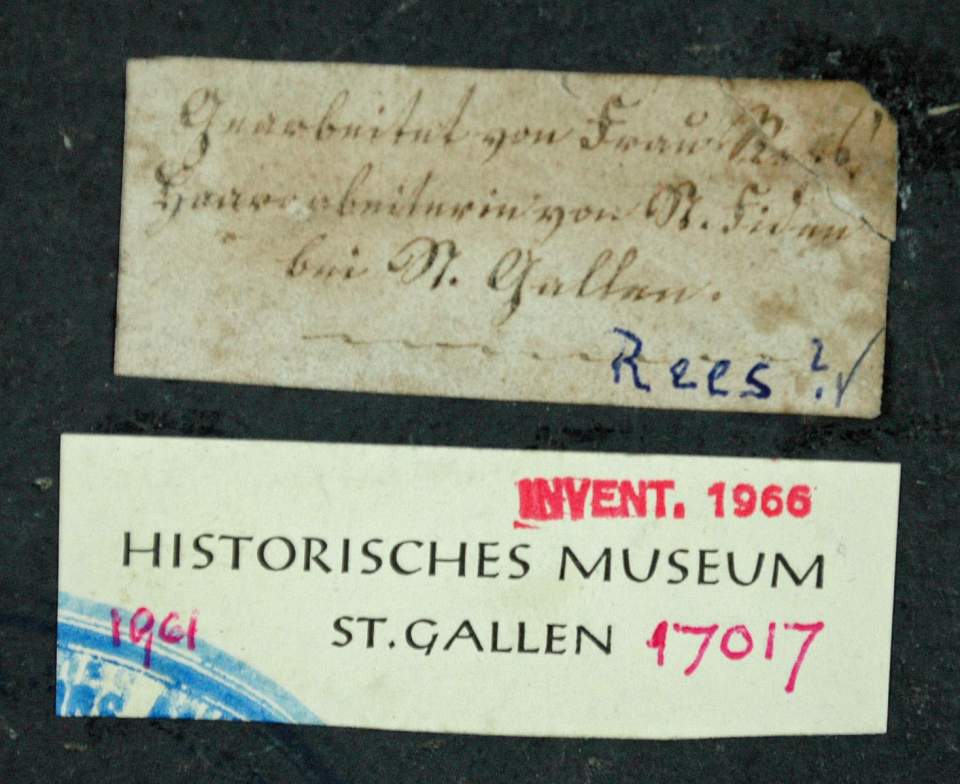 Gearbeitet von Frau
Haararbeiterin von St. Fiden
bei St. Gallen.
Rees ?
INVENT. 1966
HISTORISCHES MUSEUM
1961 ST. GALLEN 17017